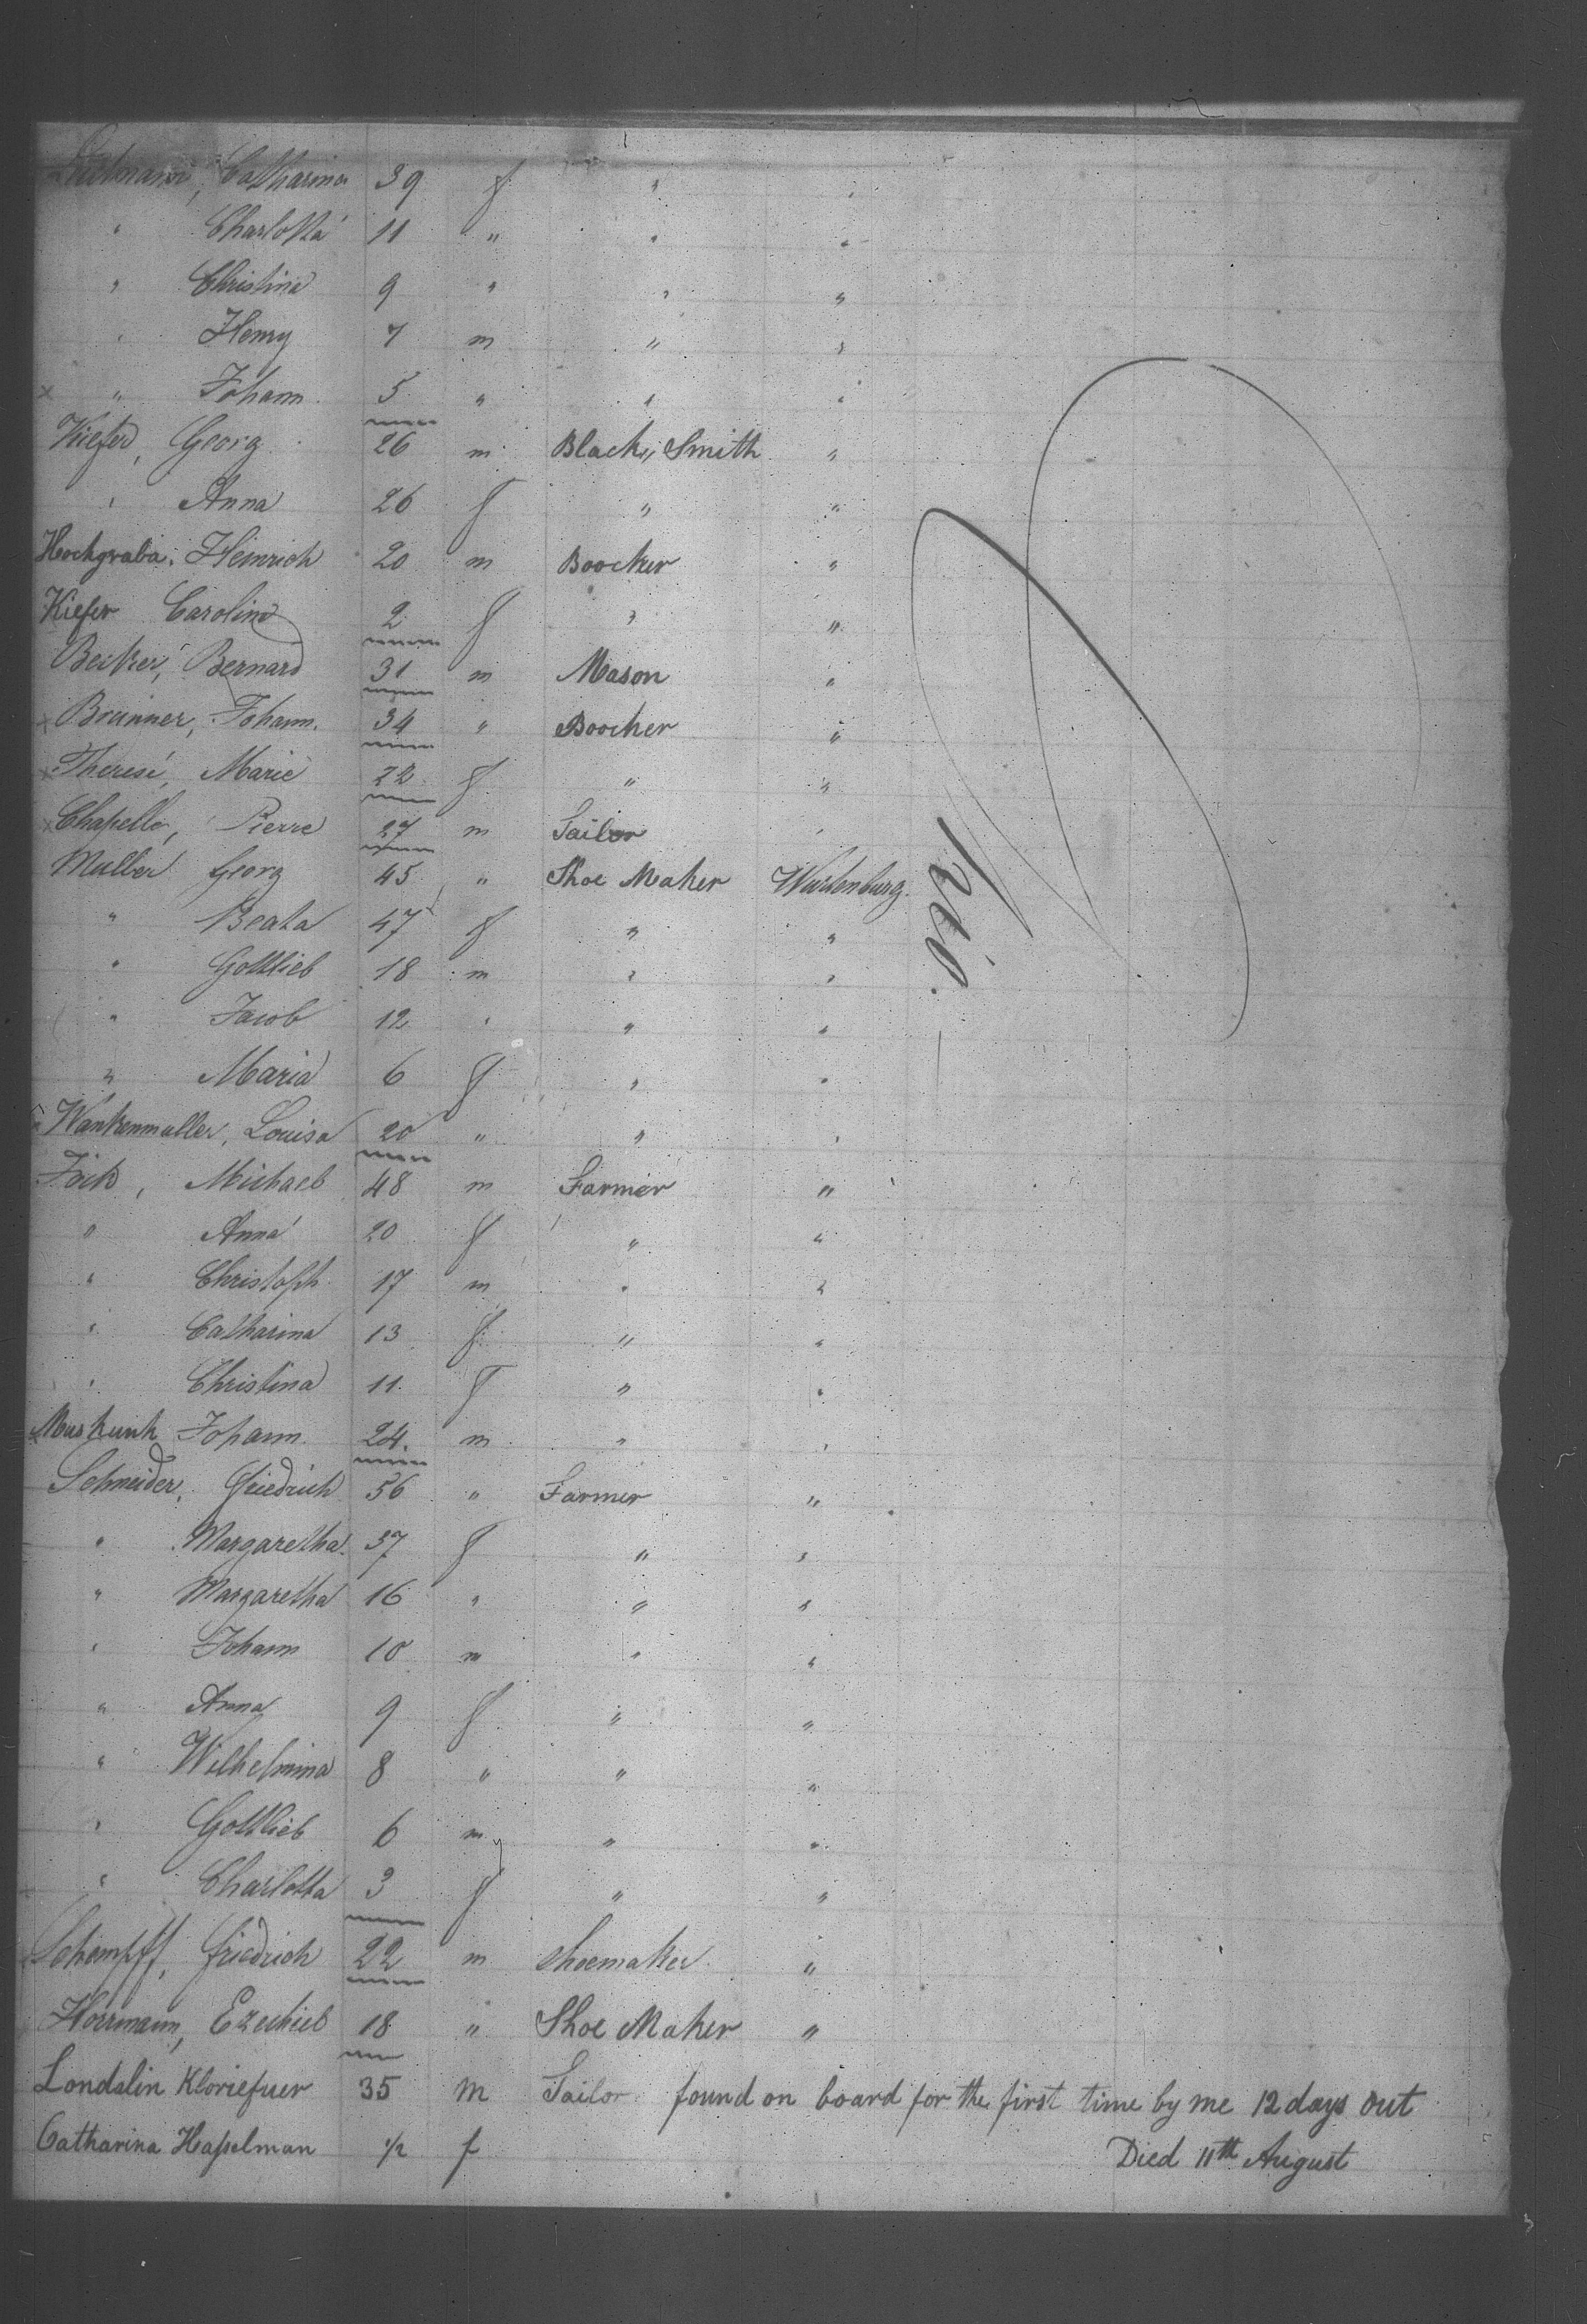 Catharina 39 f " "
" Charlotta 11 " " "
" Christina 9 " " "
" Henry 7 m " "
x " Johann 5 " " "
Kiefer, Georg 26 m Black,, Smith "
" Anna 26 f " "
Hochgraba. Heinrich 20 m Boocker "
Kiefer Carolina 2 f " "
Becker, Bernard 31 m Mason "
x Brünner, Johann. 34 " Boocker "
x Therese, Marie 22 f " "
x Chapelle, Pierre 27 m Tailor "
Muller Georg 45 " Shoe Maker Wurtenburg.
" Beata 47 f " "
" Gottlieb 18 m " "
" Jacob 12 " " "
" Maria 6 f " "
Wankenmuller, Louisa 20 " " "
Michael 48 m Farmer "
" Anna 20 f " "
" Christoph 17 m " "
" Catharina 13 f " "
" Christina 11 f " "
Johann 24. m " "
Schneider, Friedrich 56 " Farmer "
" Margaretha 37 f " "
" Margaretha 16 " " "
" Johann 10 m " "
" Anna 9 f " "
" Wilhelmina 8 " " "
" Gottlieb 6 m " "
" Charlotta 3 f " "
Schempff, Friedrich 22 m Shoemaker "
Horrmann, Ezechiel 18 " Shoe Maker "
Londalin Kloriefuer 35 m Tailor found on board for the first time by me 12 days out
Catharina Hapelman 1/2 f Died 11th August